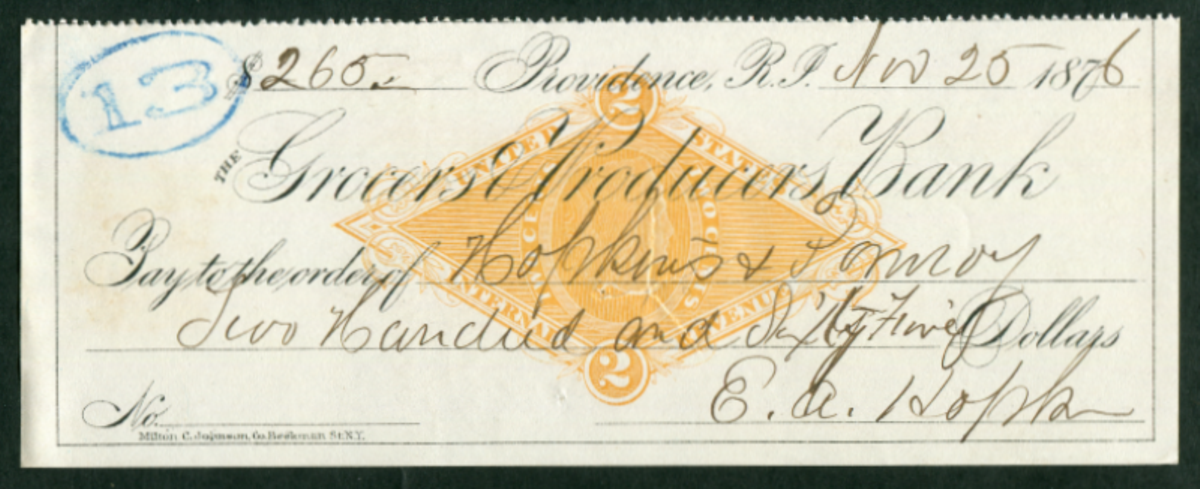 13
$ 265 Providence, R.I. Nov 25 1876
THE Grocers & Producers Bank
Pay to the order of Hopkins &
Two Hundred and Sixty Five Dollars
E. A.
No.
Milton C. Johnson, Co. Beekman St. N.Y.
2
UNITED STATES
TWO CENTS
INTERNAL REVENUE
2